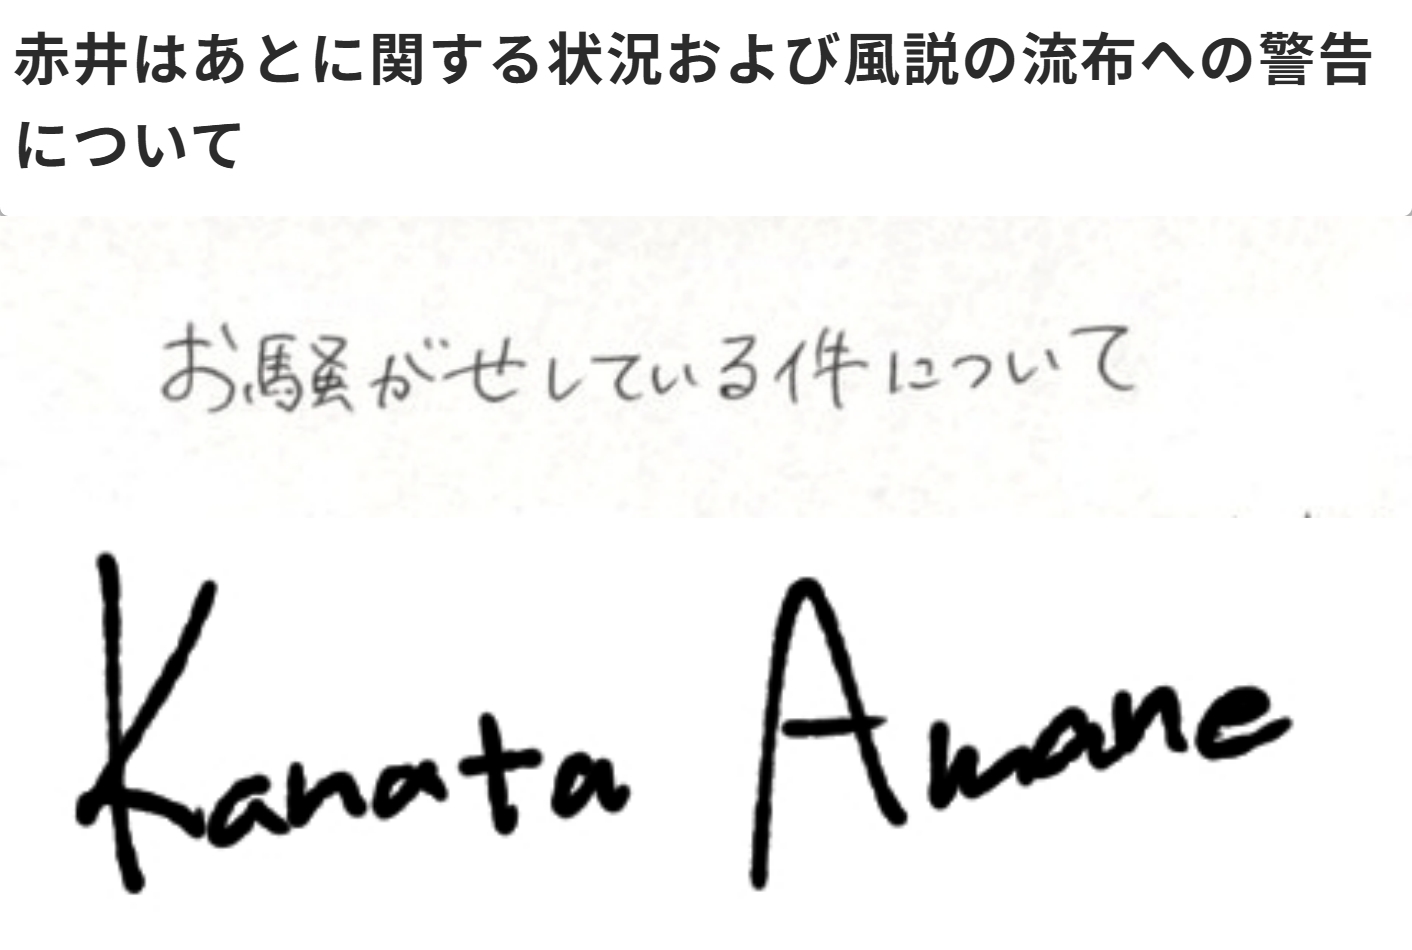 赤井はあとに関する状況および風説の流布への警告
について
お騒がせしている件について
Kanata Amane